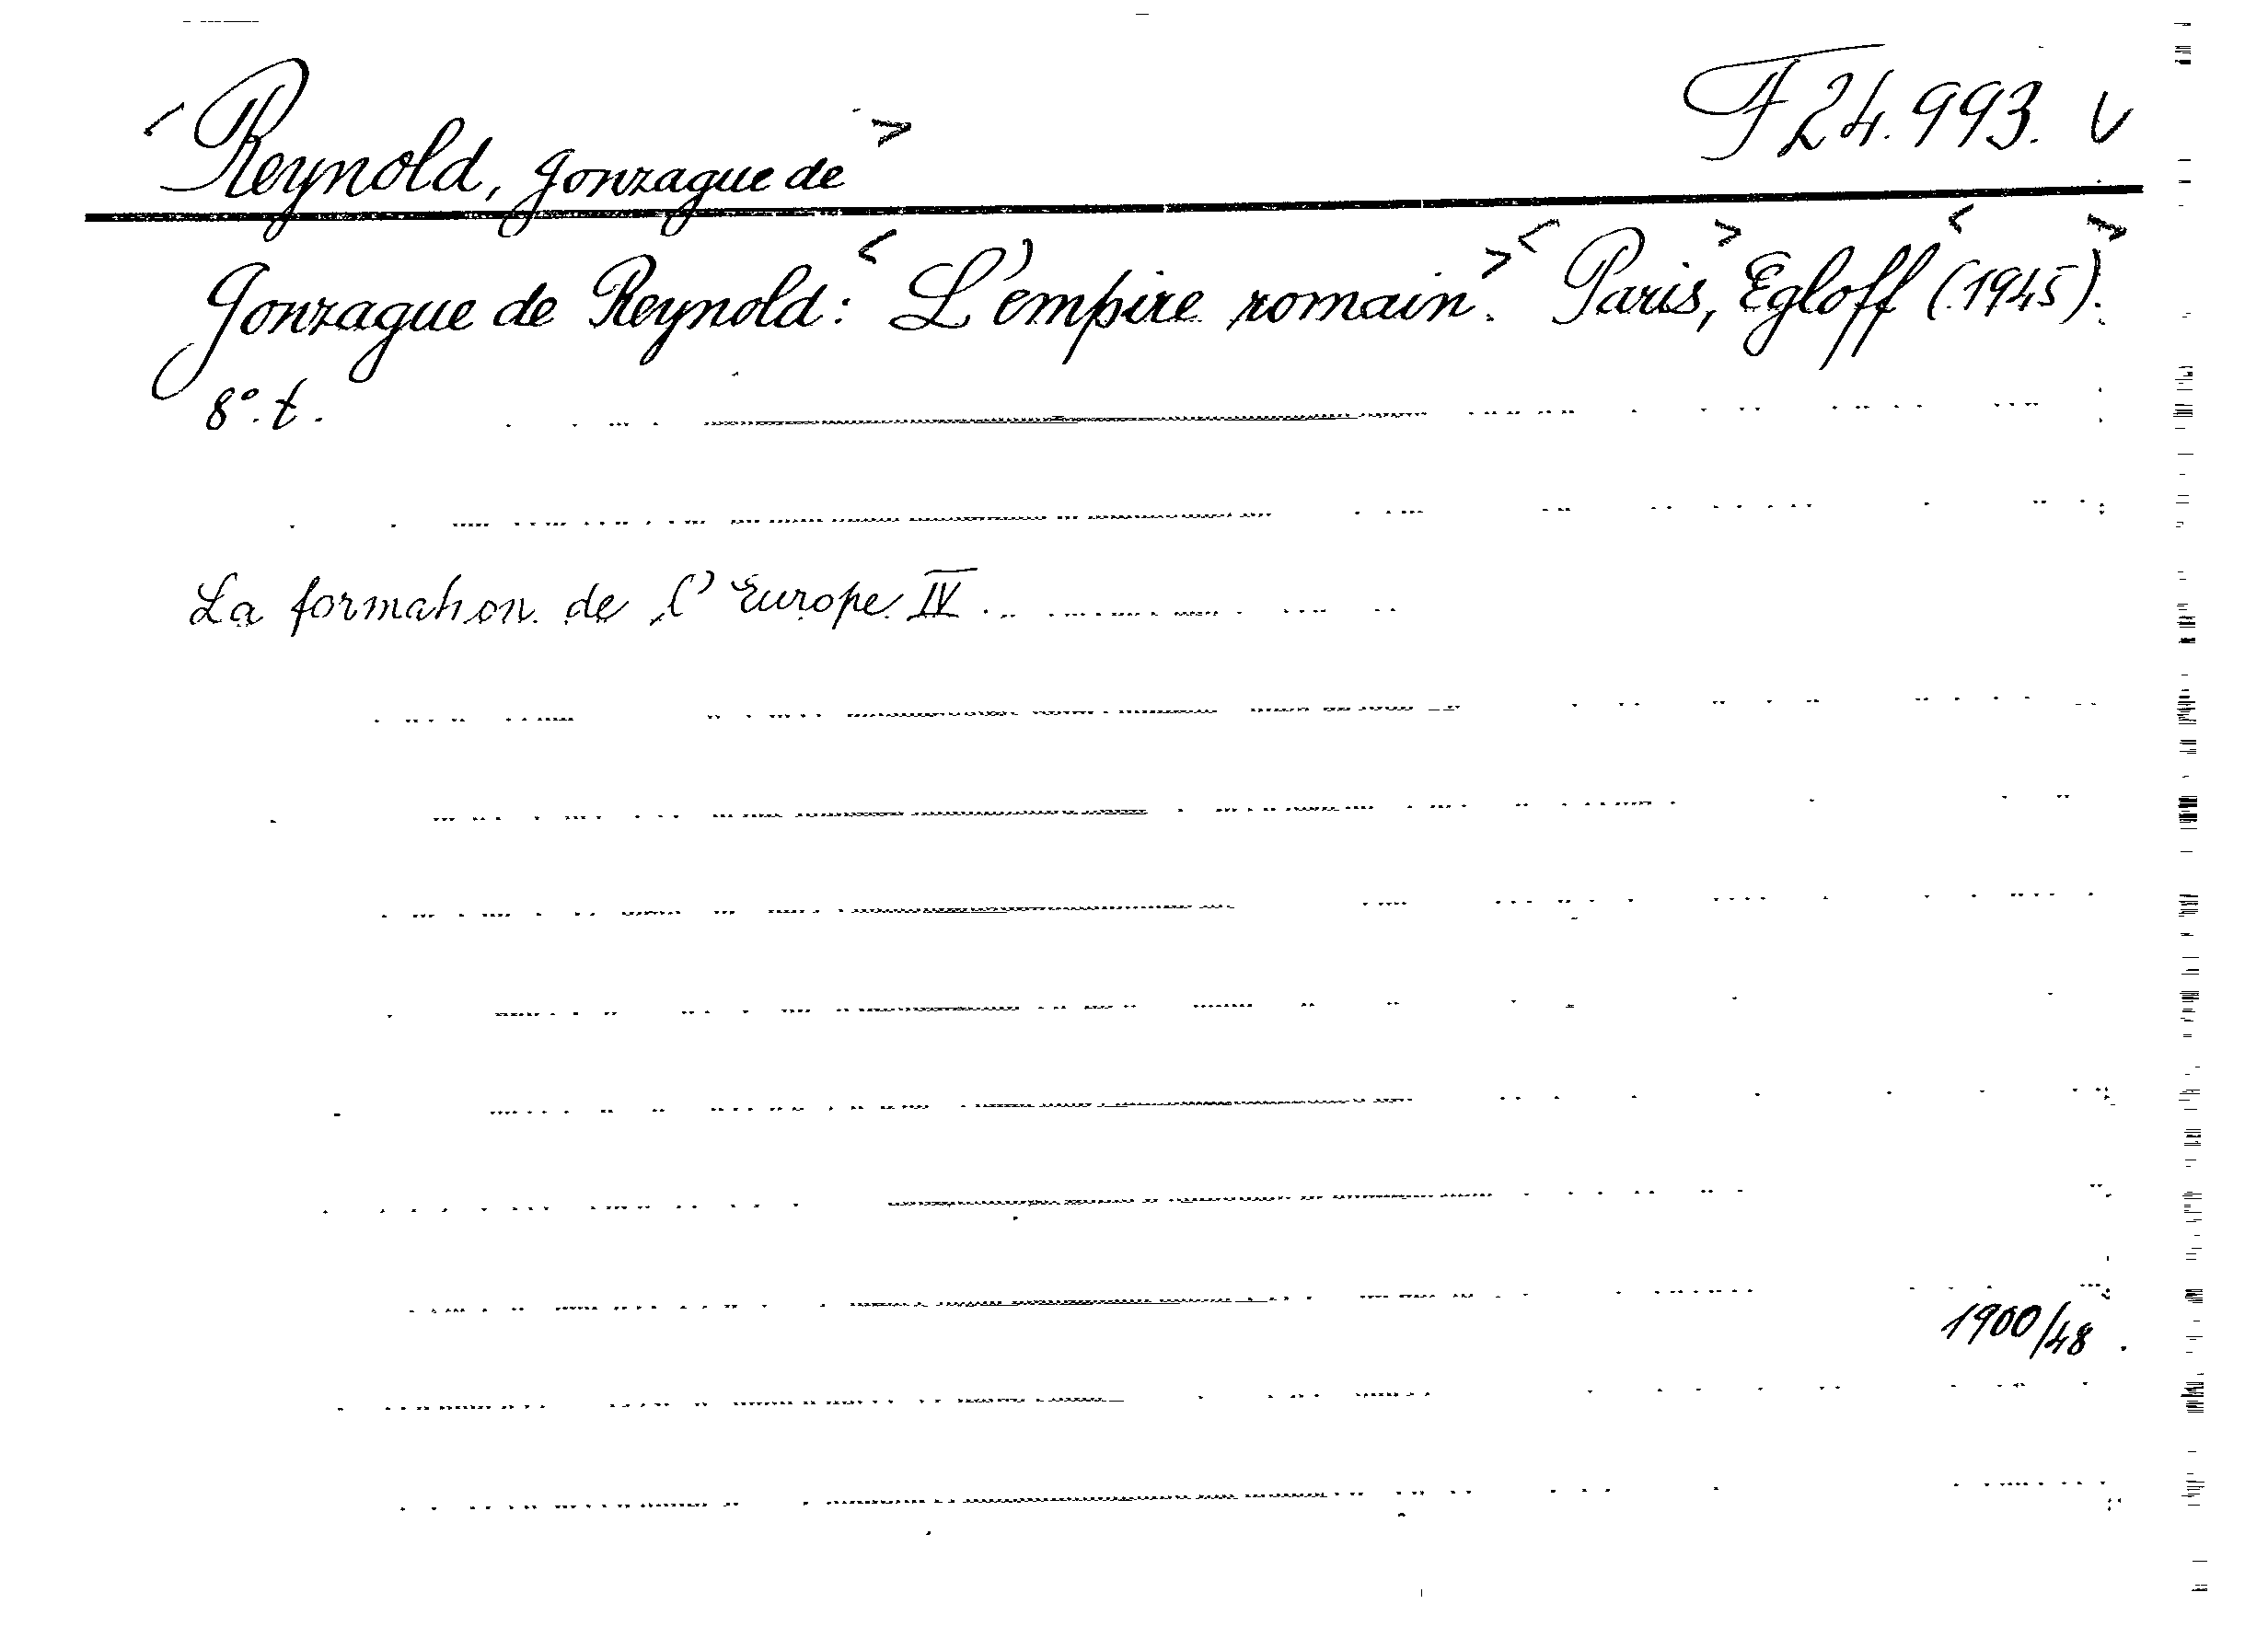 <Reynold, Gonzague de> F 24.993. V
Gonzague de Reynold: <L'empire romain>. <Paris>, Egloff <(1945)>.
8°. t.
La formation de l'Europe IV.
1900/48.